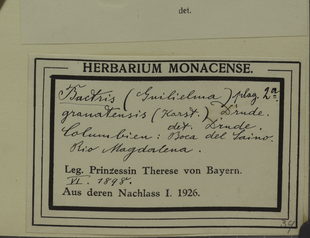 det.
HERBARIUM MONACENSE.
Bactris (Guilielma) plag. 2a.
granatensis (Karst.) Drude.
det. Drude.
Columbien: Boca del Saino.
Rio Magdalena.
Leg. Prinzessin Therese von Bayern.
VI. 1898.
Aus deren Nachlass I. 1926.